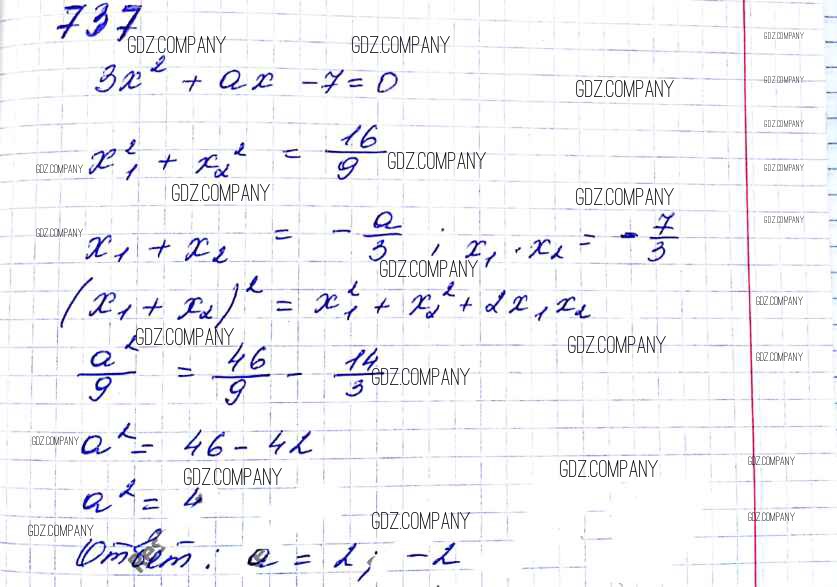 737
GDZ.COMPANY GDZ.COMPANY GDZ.COMPANY
3x² + ax - 7 = 0 GDZ.COMPANY GDZ.COMPANY
GDZ.COMPANY
x₁² + x₂² = 16/9 GDZ.COMPANY
GDZ.COMPANY GDZ.COMPANY
GDZ.COMPANY GDZ.COMPANY GDZ.COMPANY
x₁ + x₂ = - a/3 ; x₁ · x₂ = - 7/3
GDZ.COMPANY GDZ.COMPANY
GDZ.COMPANY
(x₁ + x₂)² = x₁² + x₂² + 2x₁x₂ GDZ.COMPANY
GDZ.COMPANY GDZ.COMPANY
a²/9 = 46/9 - 14/3 GDZ.COMPANY GDZ.COMPANY
GDZ.COMPANY a² = 46 - 42
GDZ.COMPANY GDZ.COMPANY GDZ.COMPANY
a² = 4
GDZ.COMPANY GDZ.COMPANY GDZ.COMPANY
Ответ: a = 2; -2